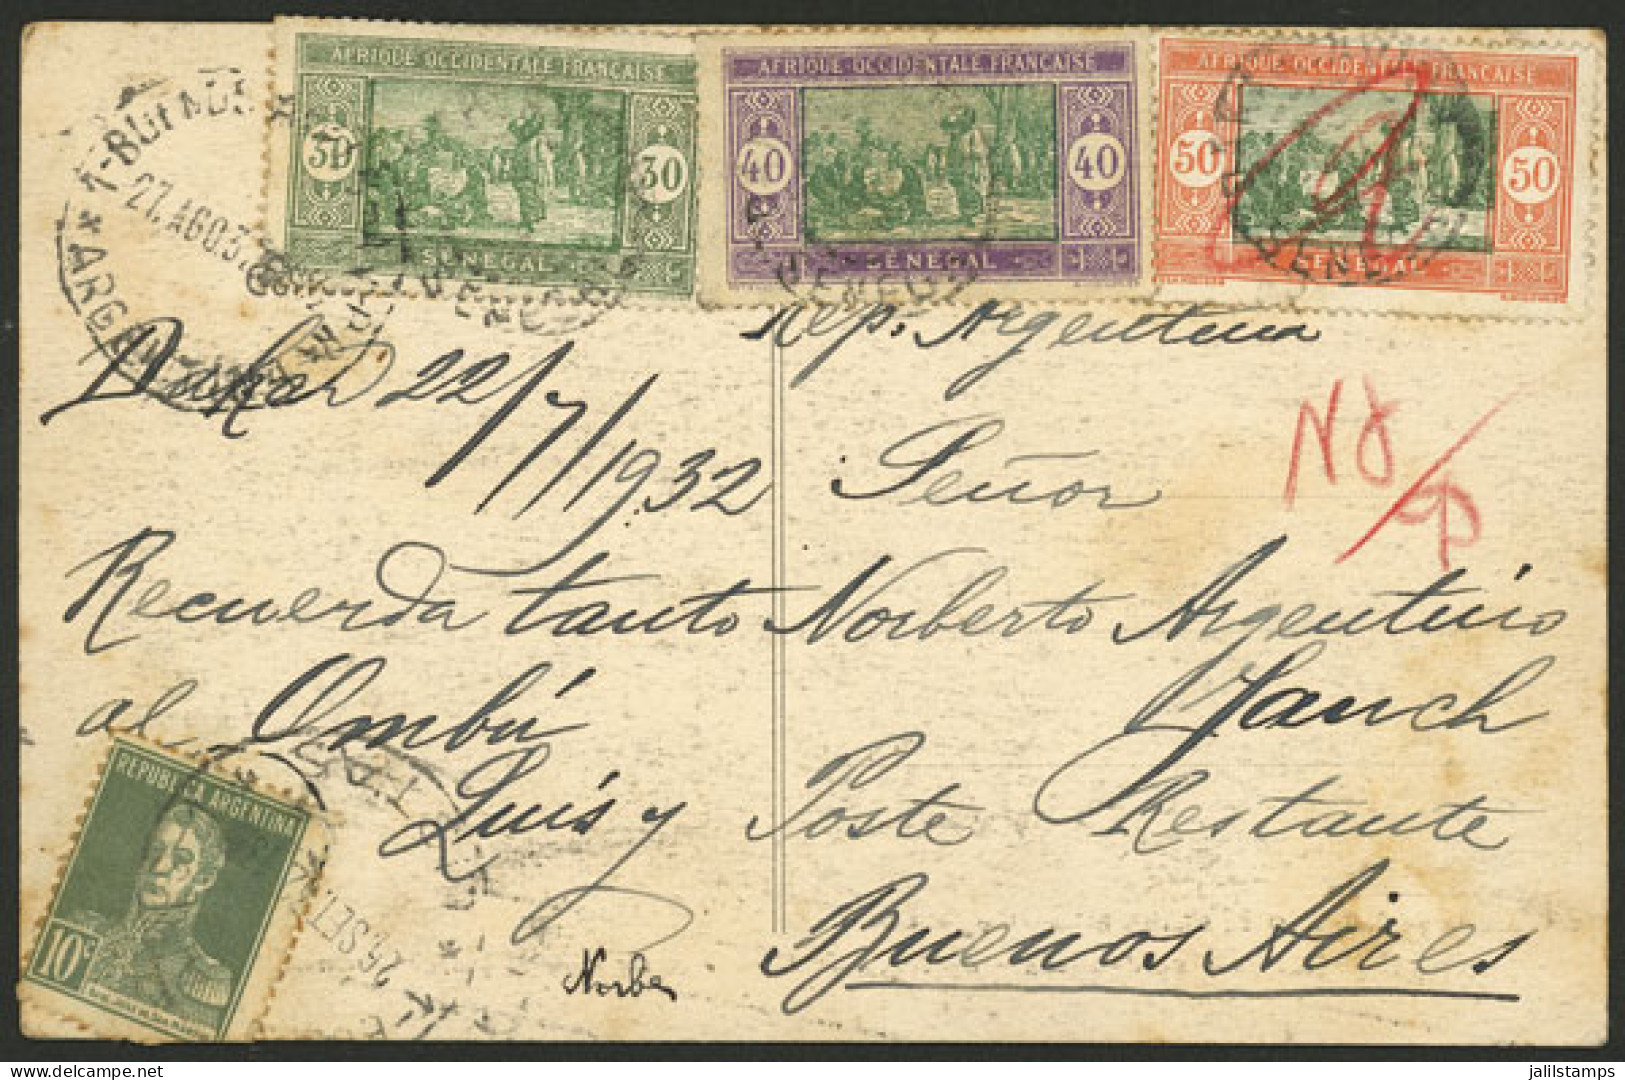 AFRIQUE OCCIDENTALE FRANÇAISE
30
30
SÉNÉGAL
AFRIQUE OCCIDENTALE FRANÇAISE
40
40
SÉNÉGAL
AFRIQUE OCCIDENTALE FRANÇAISE
50
50
SÉNÉGAL
27. AGO 3
ARGEN
Rep. Argentina
Dakar 22/7/1932
Recuerda tanto
al Ombú
Luis y
Norber
Señor
Norberto Argentino
Sanch
Poste Restante
Buenos Aires
REPUBLICA ARGENTINA
10c
26 SET
jalilstamps